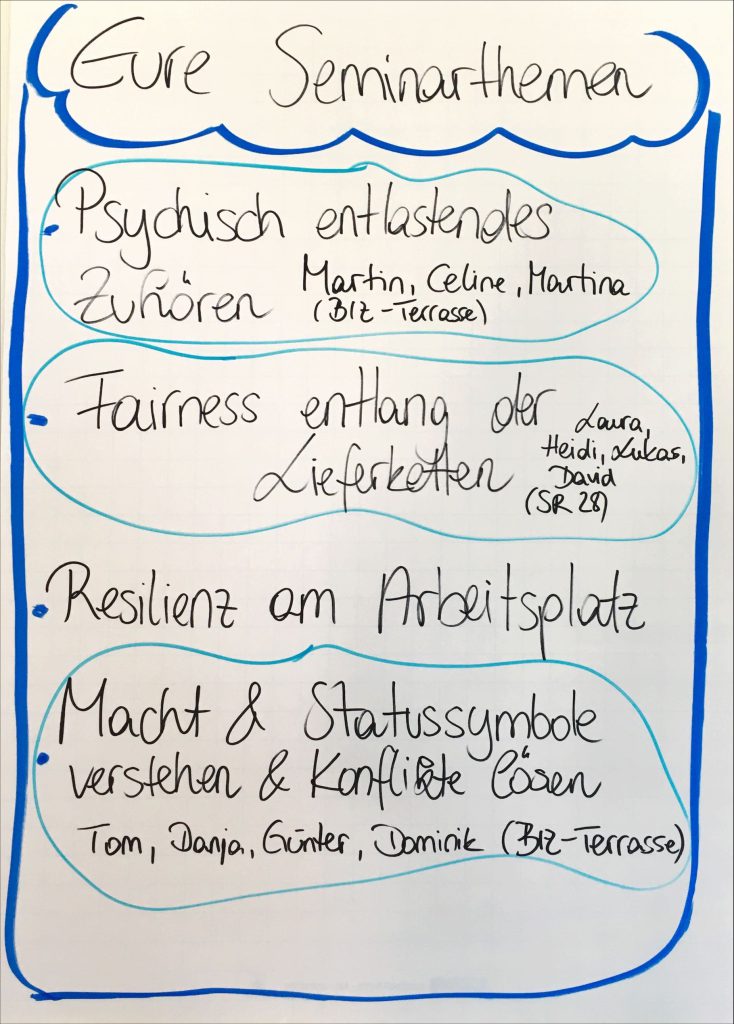 Eure Seminarthemen
Psychisch entlastendes
Zuhören Martin, Celine, Martina
(BIZ-Terrasse)
Fairness entlang der
Lieferketten
Laura,
Heidi, Lukas,
David
(SR 28)
Resilienz am Arbeitsplatz
Macht & Statussymbole
verstehen & Konflikte lösen
Tom, Danja, Günter, Dominik (BIZ-Terrasse)